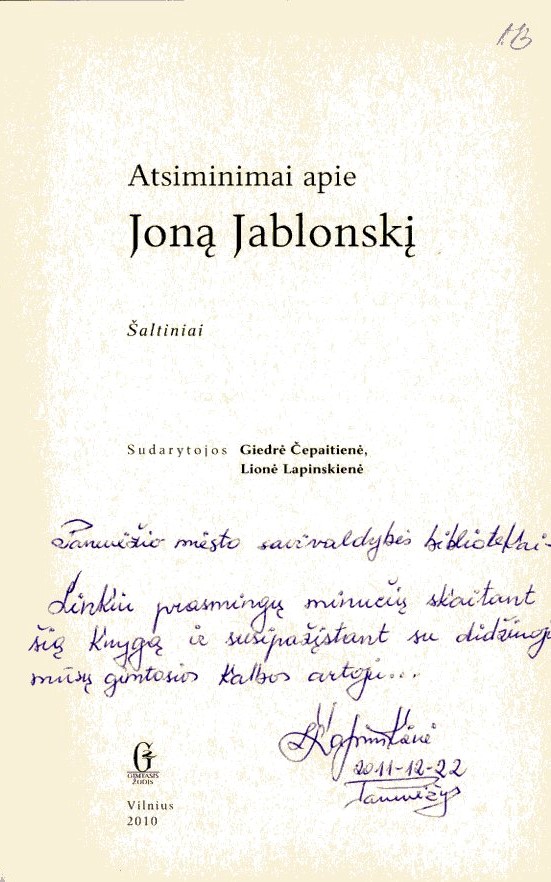 Atsiminimai apie
Joną Jablonskį
Šaltiniai
Sudarytojos Giedrė Čepaitienė,
Lionė Lapinskienė
Panevėžio miesto savivaldybės bibliotekai-
Linkiu prasmingų minučių skaitant
šią knygą ir susipažįstant su didžiuoju
mūsų gimtosios kalbos artoju...
LLapinskienė
2011-12-22
Panevėžys
GIMTASIS
ŽODIS
Vilnius
2010